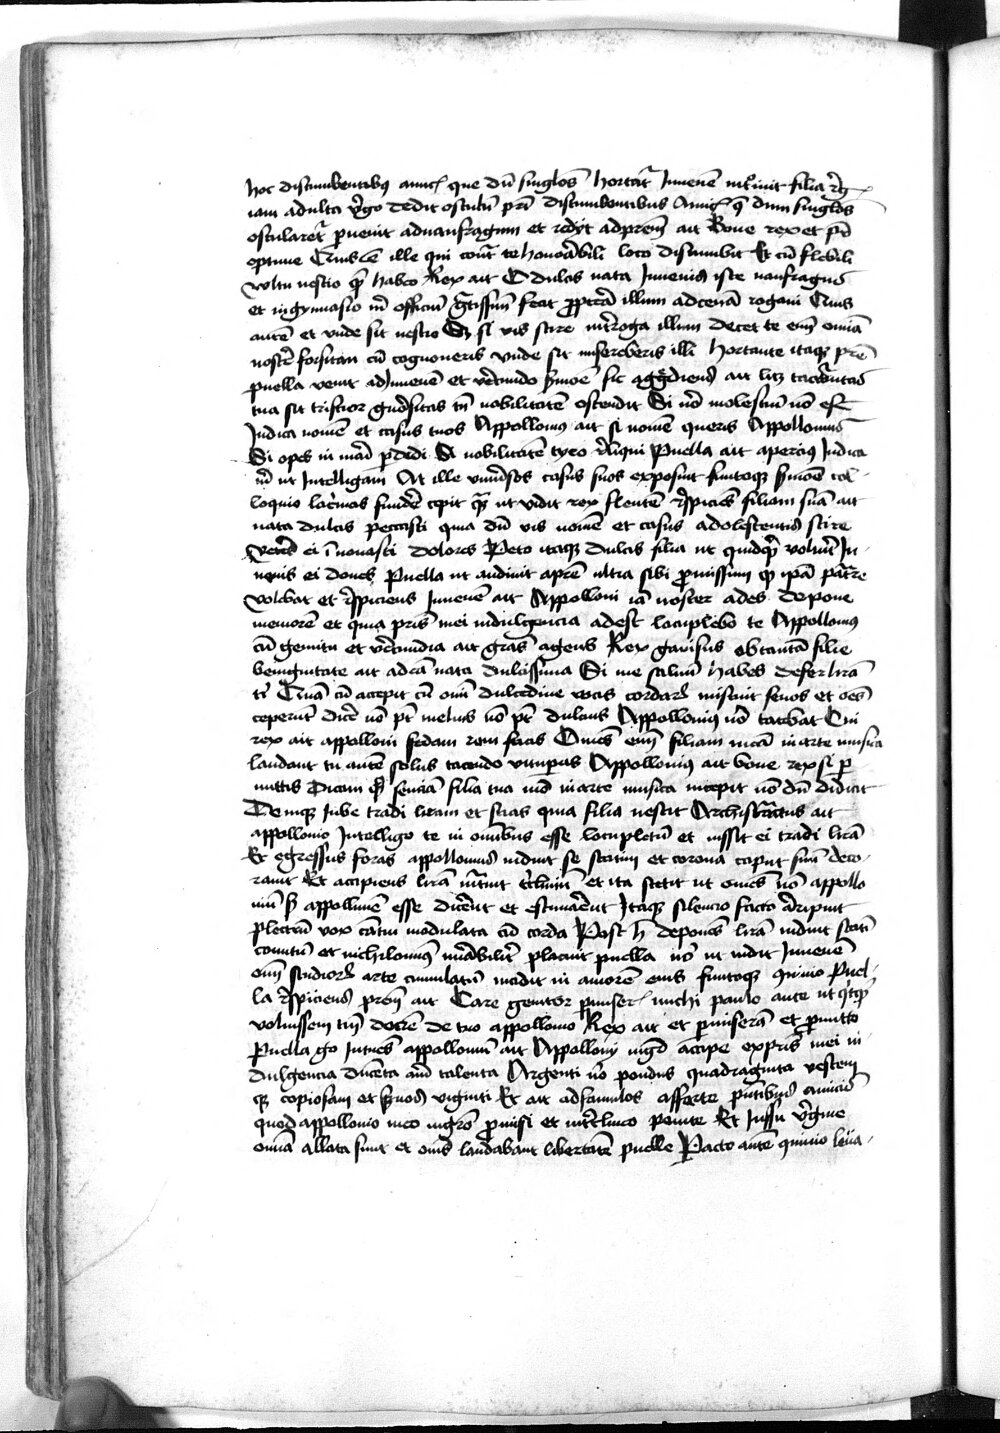 hoc discumbentibus amicis que dū singulos hortat̄ Iuuenē int̄roiuit filia reḡ
iam adulta v̄go dedit osculū pr̄i discumbentibus Amicis q̄ dum singulos
oscularet̄ peruenit ad naufragum et redijt ad prem̄ ait Bone rex et pr̄
optime Quis ē ille qui contr̄ te honorabili loco discumbit Et cū flebili
vultu nescio qm̄ habeo Rex ait O dulcis nata Iuuenis iste naufragus
et in gymnasio m̄ officiū gratissimū fecit propterea illum ad cenā rogaui Quis
autē et vnde sit nescio Sz si vis scire int̄roga illum Decet te em̄ omīa
nosc̄e forsitan cū cognoueris vnde sit misereberis illi Hortante itaqz prē
puella venit ad Iuuenē et verecundo s̄moē sic aggrediens ait licz taciturnitas
tua sit tristior gn̄ositas tn̄ nobilitatē ostendit Si nō molestum nō est
Iudica nomē et casus tuos Appollonius ait si nomē queris Appollonius
Si opes in mari p̄didi Si nobilitatē tyro reliqui Puella ait apercius Iudica
m̄ ut Intelligam At ille vniuersos casus suos exposuit finitoqz s̄moē col-
loquio lacrimas fundē cepit Quē ut vidit rex flentē respiciēs filiam suā ait
nata dulcis peccasti quia dū vis nomē et casus adolescentis scire
veteres ei renouasti dolores Peto itaqz dulcis filia ut quidquid voluerit Iu-
uenis ei dones Puella ut audiuit a prē ultra sibi promissum qz ip̄a p̄stare
volebat et respiciens Iuuenē ait Appolloni iā noster ades depone
memorē et quia pr̄is mei indulgencia adest locuplebo te Appollonius
cū gemitu et verecundia ait grās agens Rex gauisus ob tantā filie
benignitatē ait ad eā nata dulcissima Si me saluum habes defer lirā
Quā cū accepit cū omi dulcedine vocis cordarū miscuit sonos et oēs
ceperūt dicē nō pt̄ melius nō pt̄ dulcius Appollonius nō tacebat Cui
rex ait appolloni fedam rem facis Omēs em̄ filiam meā in arte musica
laudant tu autē solus tacendo vituperas Appollonius ait bone rex si per
mittis Dicam qd̄ senciā filia tua m̄ in arte musica incepit nō dū didicit
Deniqz iube tradi liram et scias quia filia nescit Archistratus ait
appollonio Intelligo te in omibus esse locupletū et iussit ei tradi lirā
Et egressus foras appollonius induit se statim et corona caput suū deco-
rauit Et accipiens lirā int̄uit triclinium et ita stetit ut omēs nō appollo
nium s̄ appollinē esse dicerēt et estimarēt Itaqz silencio facto arripuit
plectrū vox cantū modulata cū corda Post h̄ deponēs lirā induit statū
comicum et nichilominus mirabilit̄ placuit puella v̄o ut vidit Iuuenē
oīm studiorū arte cumulatū incidit in amorē eius finitoqz conuiuio Puel-
la respiciens prem̄ ait Care genitor permiseras michi paulo ante ut quidquid
voluissem tm̄ darē de tuo appollonio Rex ait et permiserā et permitto
Puella ergo Intuēs appollonium ait Appolloni mgr̄ accipe ex pris̄ mei in-
dulgencia ducenta auri talenta Argenti v̄o pondus quadraginta vestem
qz copiosam et seruos viginti Et ait ad famulos afferte presentibus amicis
quod appollonio meo magr̄o promisi et in triclinio ponite Et Iussu v̄gine
omīa allata sunt et omēs laudabant libertatē puelle Pacto autē conuiuio leua-